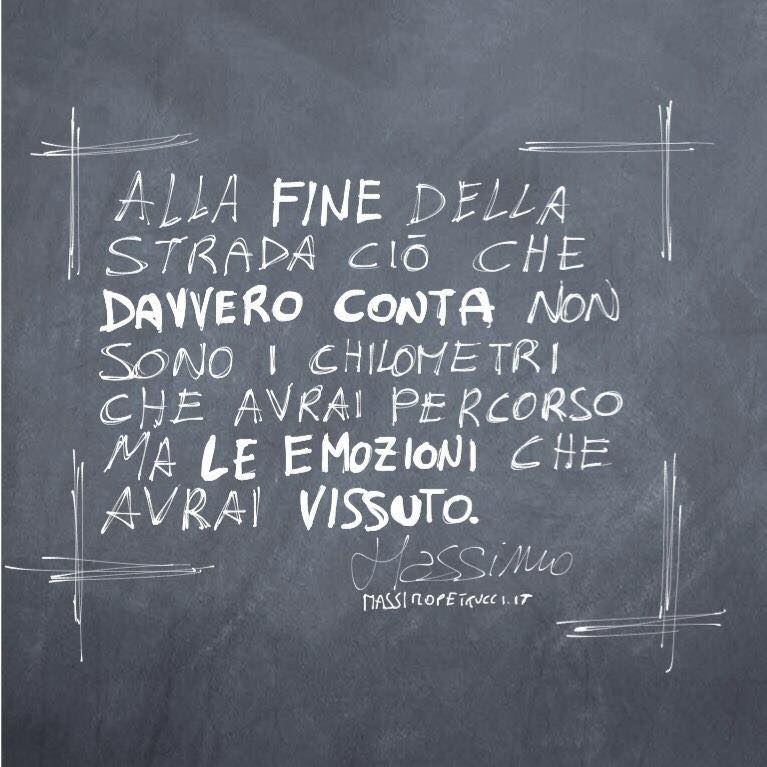 ALLA FINE DELLA
STRADA CIÒ CHE
DAVVERO CONTA NON
SONO I CHILOMETRI
CHE AVRAI PERCORSO
MA LE EMOZIONI CHE
AVRAI VISSUTO.
Massimo
MASSIMOPETRUCCI.IT